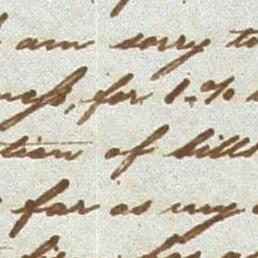 am sorry to
ness, for 1.%
tion of bills
far as my